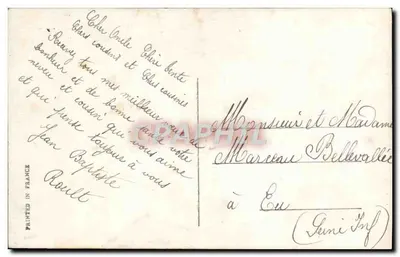 Cher Oncle Chère tante
Chers cousins et Chers cousines
Recevez tous mes meilleur vœux de
bonheur et de bonne santé votre
neveu et cousin qui vous aime
et qui pense toujours à vous
Jean Baptiste
Roult
Monsieur et Madame
Marceau Bellevallée
à Eu
(Seine Inf)
PRINTED IN FRANCE